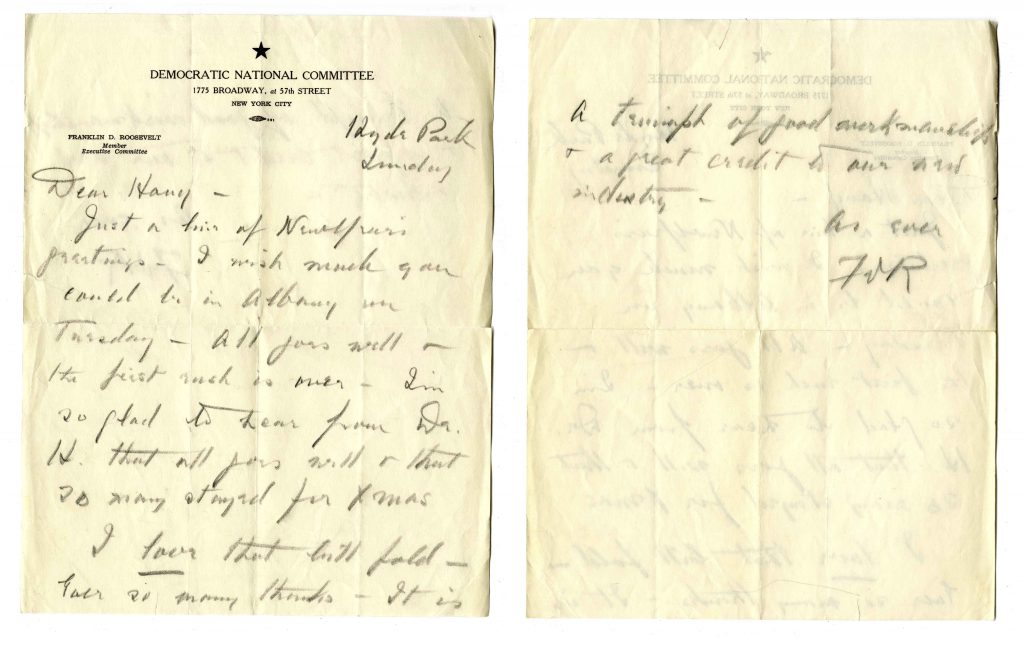 DEMOCRATIC NATIONAL COMMITTEE
1775 BROADWAY, at 57th STREET
NEW YORK CITY
FRANKLIN D. ROOSEVELT
Member
Executive Committee
Hyde Park
Sunday
Dear
Just a line of New Year's
greetings – I wish much you
could be in Albany on
Tuesday – All goes well &
the first rush is over – I'm
so glad to hear from Dr.
H. that all goes well & that
so many stayed for Xmas
I love that bill fold –
Ever so many thanks – It is
A triumph of good workmanship
& a great credit to our new
industry –
As ever
FDR